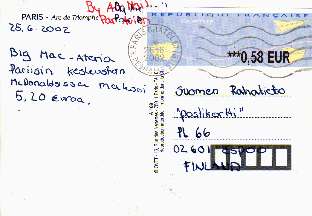 PARIS - Arc de Triomphe
By Air Mail
Par Avion
RÉPUBLIQUE FRANÇAISE
***0,58 EUR
25.6.2002
Big Mac -ateria
Pariisin keskustan
McDonaldsissa maksoi
5,20 Euroa.
Suomen Rahatieto
"postikortti"
PL 66
02601 ESPOO
FINLAND